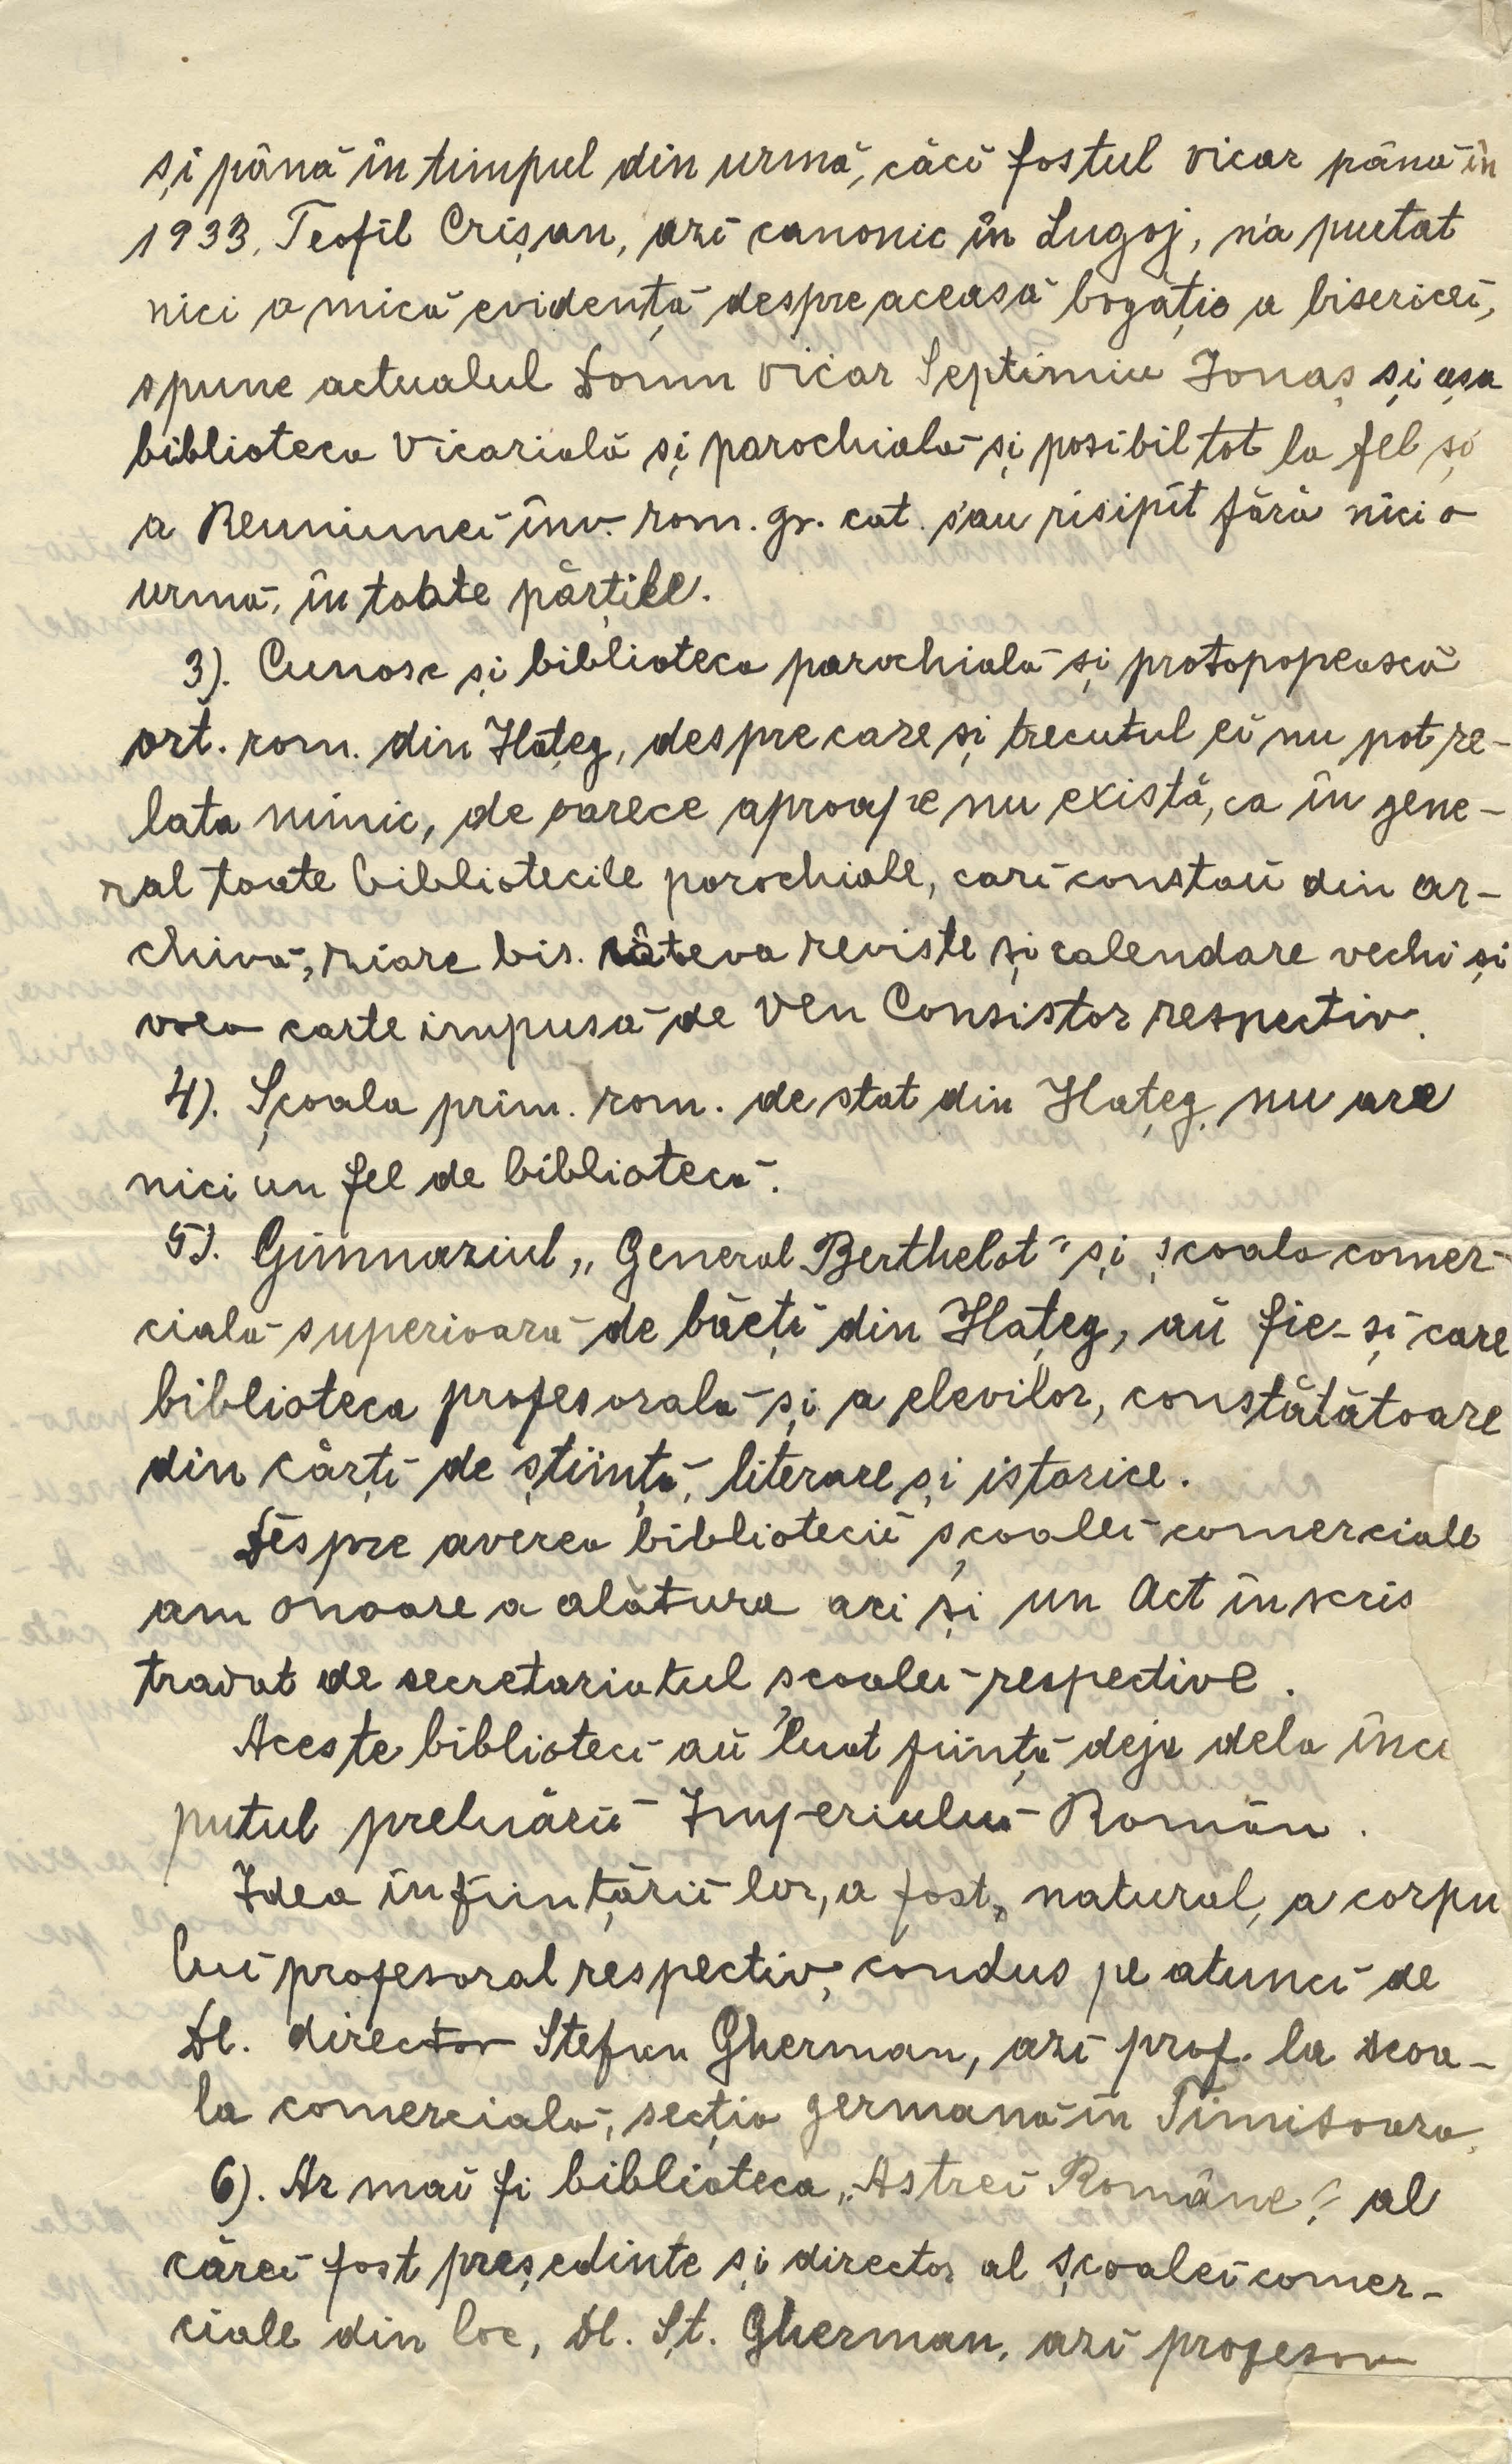 și până în timpul din urmă, căci fostul vicar până în
1933, Teofil Crișan, azi canonic în Lugoj, n'a purtat
nici o mică evidență despre aceasă bogăție a bisericei,
spune actualul Domn vicar Septimiu Jonaș și așa
biblioteca vicarială și parochială și posibil tot la fel și
a Reuniunei înv. rom. gr. cat. s'au risipit fără nici o
urmă, în toate părțile.
3). Cunosc și biblioteca parochială și protopopească
ort. rom. din Hațeg, despre care și trecutul ei nu pot re-
lata nimic, de oarece aproape nu există, ca în gene-
ral toate bibliotecile parochiale, cari constau din ar-
chivă, ziare bis. câteva reviste și calendare vechi și
vreo carte impusă de Ven Consistor respectiv.
4). Școala prim. rom. de stat din Hațeg, nu are
nici un fel de bibliotecă.
5). Gimnaziul „General Berthelot" și școala comer-
cială superioară de băeți din Hațeg, au fie-și care
biblioteca profesorală și a elevilor, constătătoare
din cărți de știință, literare și istorice.
Despre averea bibliotecii școalei comerciale
am onoare a alătura aci și un Act în scris
tradat de secretariatul școalei respective.
Aceste biblioteci au luat ființă deja dela înce
putul preluării Imperiului Român.
Idea înființării lor, a fost, natural, a corpu
lui profesoral respectiv, condus pe atunci de
Dl. director Stefan Gherman, azi prof. la scoa-
la comercială, secția germană în Timisoara.
6). Ar mai fi biblioteca „Astrei Române", al
cărei fost președinte și director al școalei comer-
ciale din loc, Dl. Șt. Gherman, azi profesor